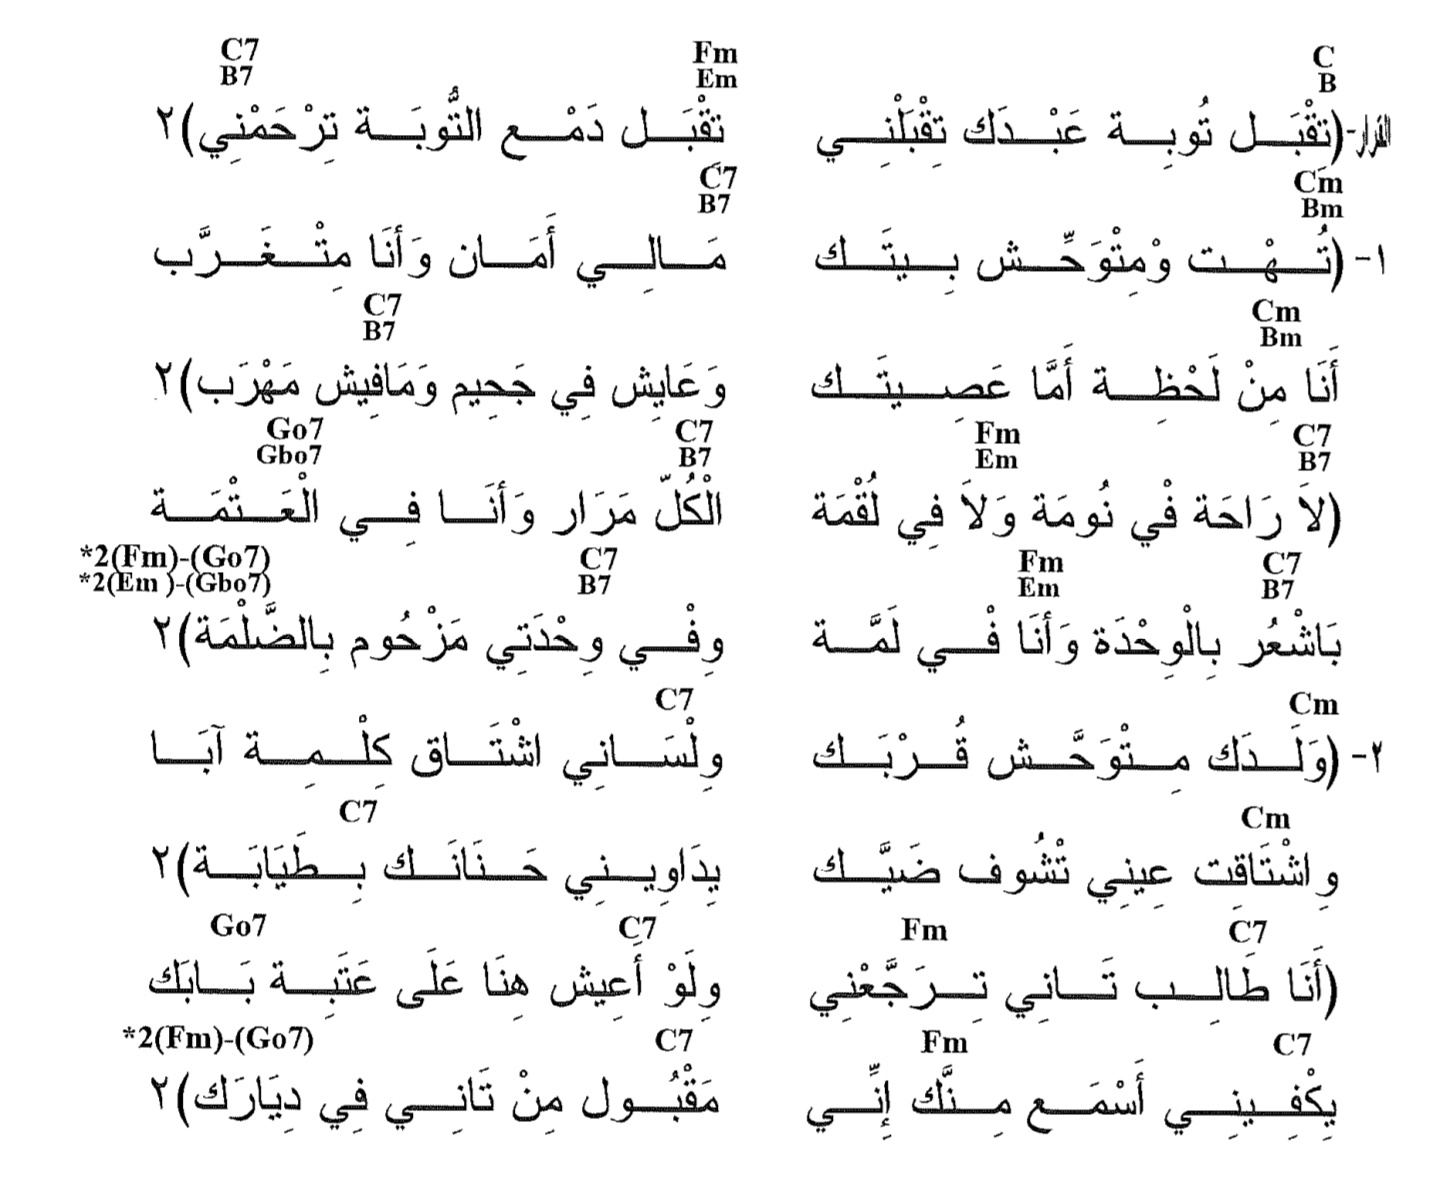 C7 Fm C
B7 Em B
القرار-(تِقْبَل تُوبِة عَبْدَك تِقْبَلْنِي تِقْبَل دَمْع التُّوبَة تِرْحَمْنِي)٢
C7 Cm
B7 Bm
١- (تُهْت وْمِتْوَحِّش بِيتَك مَالِي أَمَان وَأنَا مِتْغَرَّب
C7 Cm
B7 Bm
أَنَا مِنْ لَحْظِة أَمَّا عَصِيتَك وَعَايِش فِي جَحِيم وَمَافِيش مَهْرَب)٢
Go7 C7 Fm C7
Gbo7 B7 Em B7
(لاَ رَاحَة فْي نُومَة وَلاَ فِي لُقْمَة الْكُلّ مَرَار وَأنَا فِي الْعَتْمَة
*2(Fm)-(Go7) C7 Fm C7
*2(Em )-(Gbo7) B7 Em B7
بَاشْعُر بِالْوِحْدَة وَأنَا فْي لَمَّة وِفْي وِحْدَتِي مَزْحُوم بِالضَّلْمَة)٢
C7 Cm
٢- (وَلَدَك مِتْوَحَّش قُرْبَك وِلْسَانِي اشْتَاق كِلْمِة آبَا
C7 Cm
وِاشْتَاقِت عِينِي تْشُوف ضَيَّك يِدَاوِينِي حَنَانَك بِطَيَابَة)٢
Go7 C7 Fm C7
(أَنَا طَالِب تَانِي تِرَجَّعْنِي وِلَوْ أَعِيش هِنَا عَلَى عَتَبِة بَابَك
*2(Fm)-(Go7) C7 Fm C7
يِكْفِينِي أَسْمَع مِنَّك إِنِّي مَقْبُول مِنْ تَانِي فِي دِيَارَك)٢